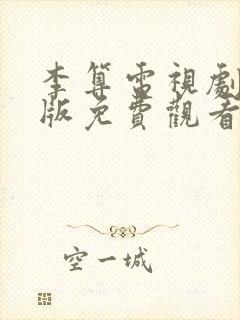 李算電視劇
版免費觀看
空一城